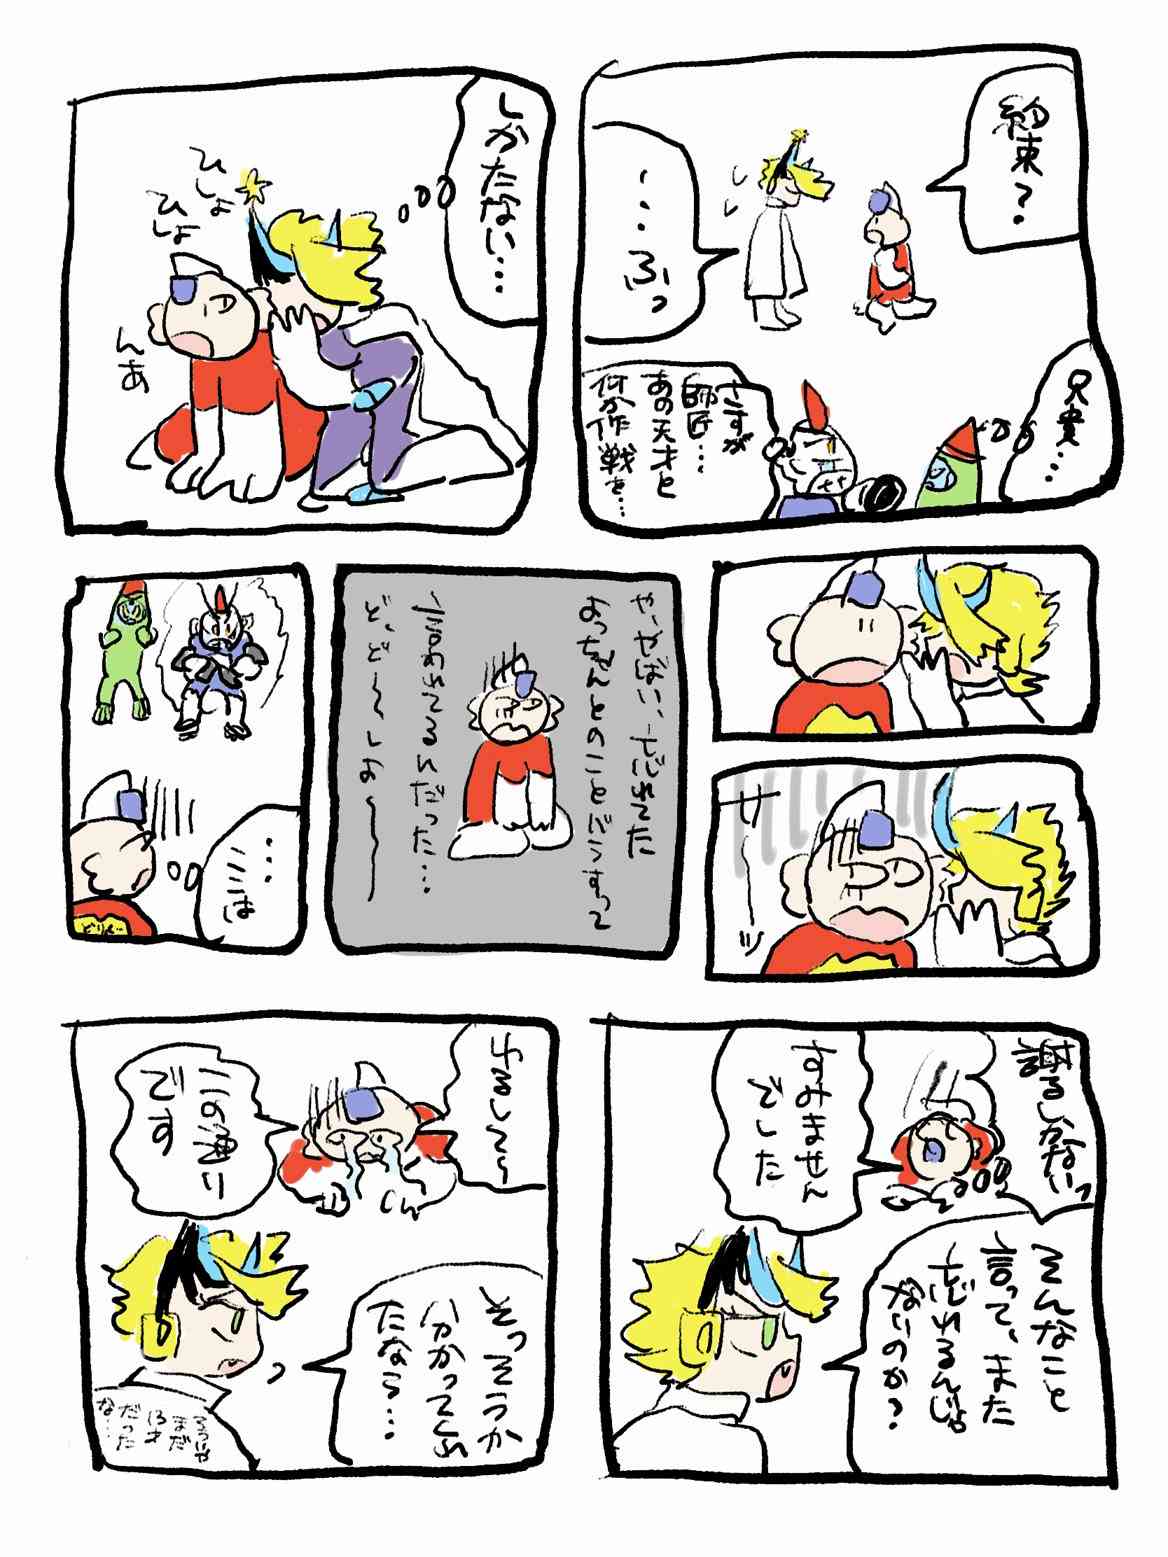 約束?
・・・ふっ
兄貴…
さすが
師匠…
あの天才と
何か作戦を…
しかたない…
ひしょ
ひしょ
んあ
サーーッ
や、やばい、忘れてた
よっちゃんとのことバラすって
言われてるんだった…
ど、ど〜しよ〜〜
…ここは
謝るしかないっ
すみません
でした
そんなこと
言って、また
忘れるんじゃ
ないのか?
ゆるして〜
この通り
です
そっそうか
分かってくれ
たなら…
そういや
まだ
13才
だった
な…